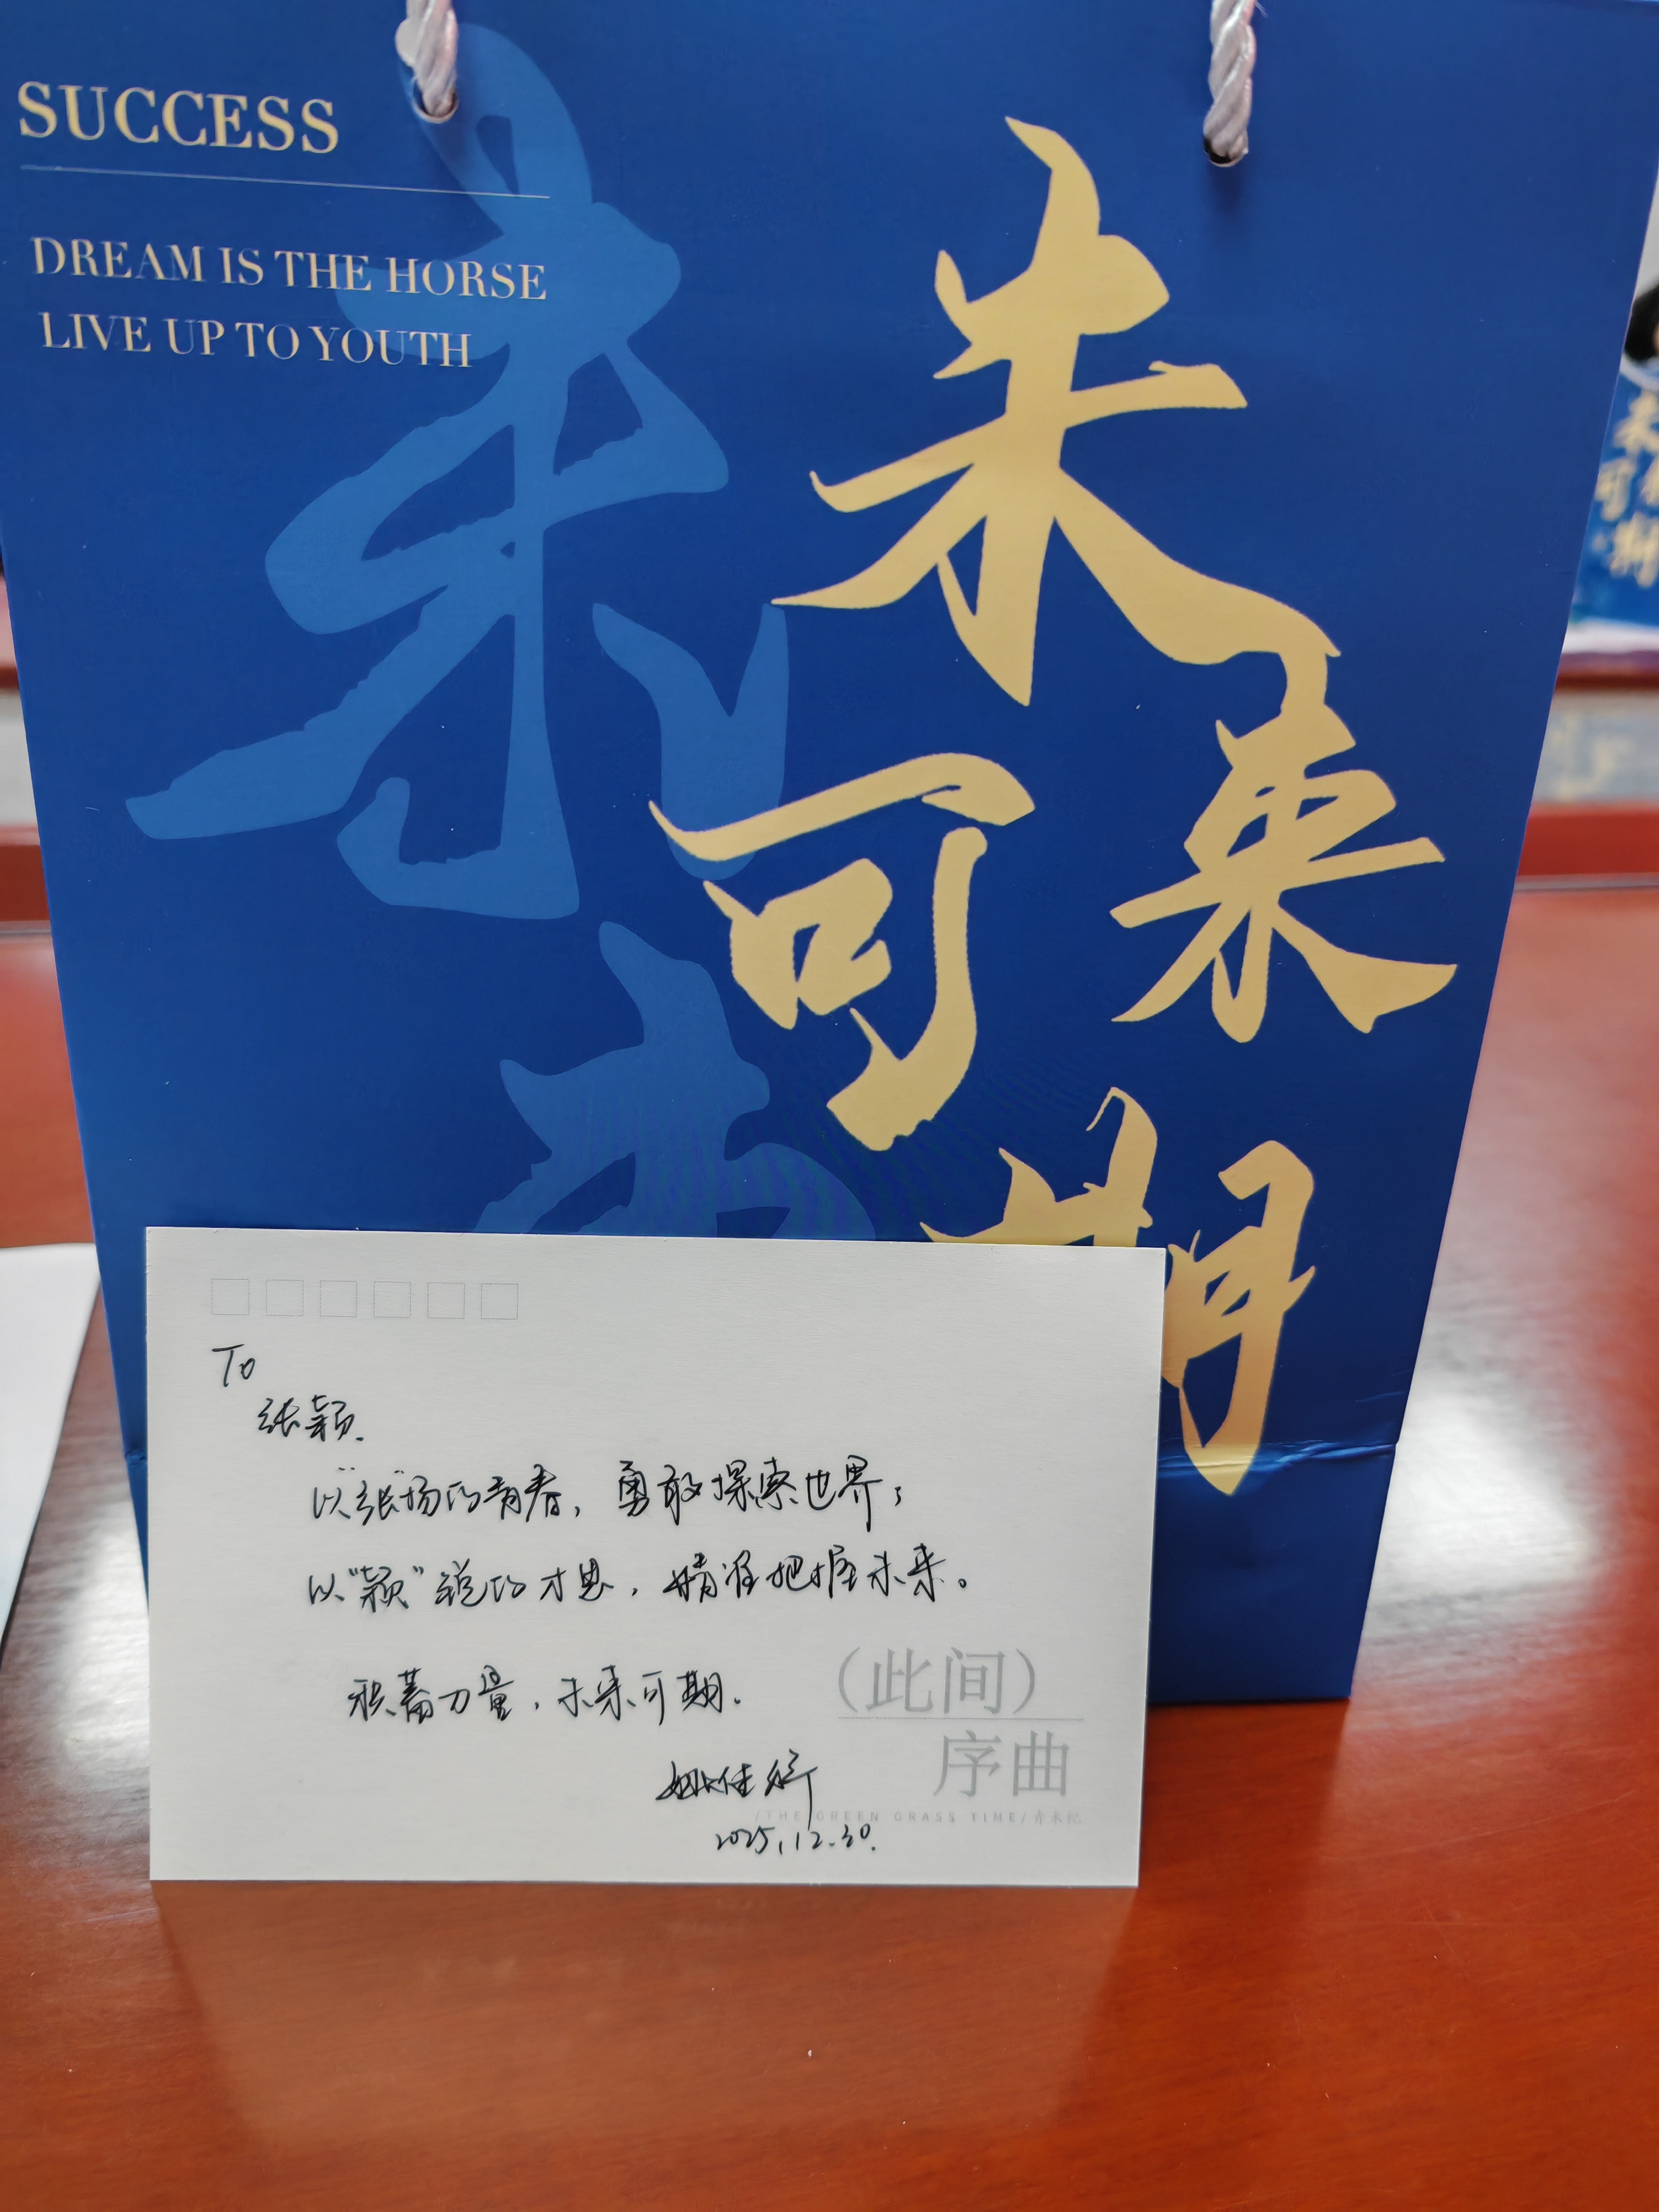 SUCCESS
DREAM IS THE HORSE
LIVE UP TO YOUTH
未来
可期
To
张颖.
以"张"扬的青春，勇敢探索世界；
以"颖"锐的才思，精准把握未来。
积蓄力量，未来可期.
2025.12.30.
（此间）
序曲
/THE GREEN GRASS TIME/青禾纪